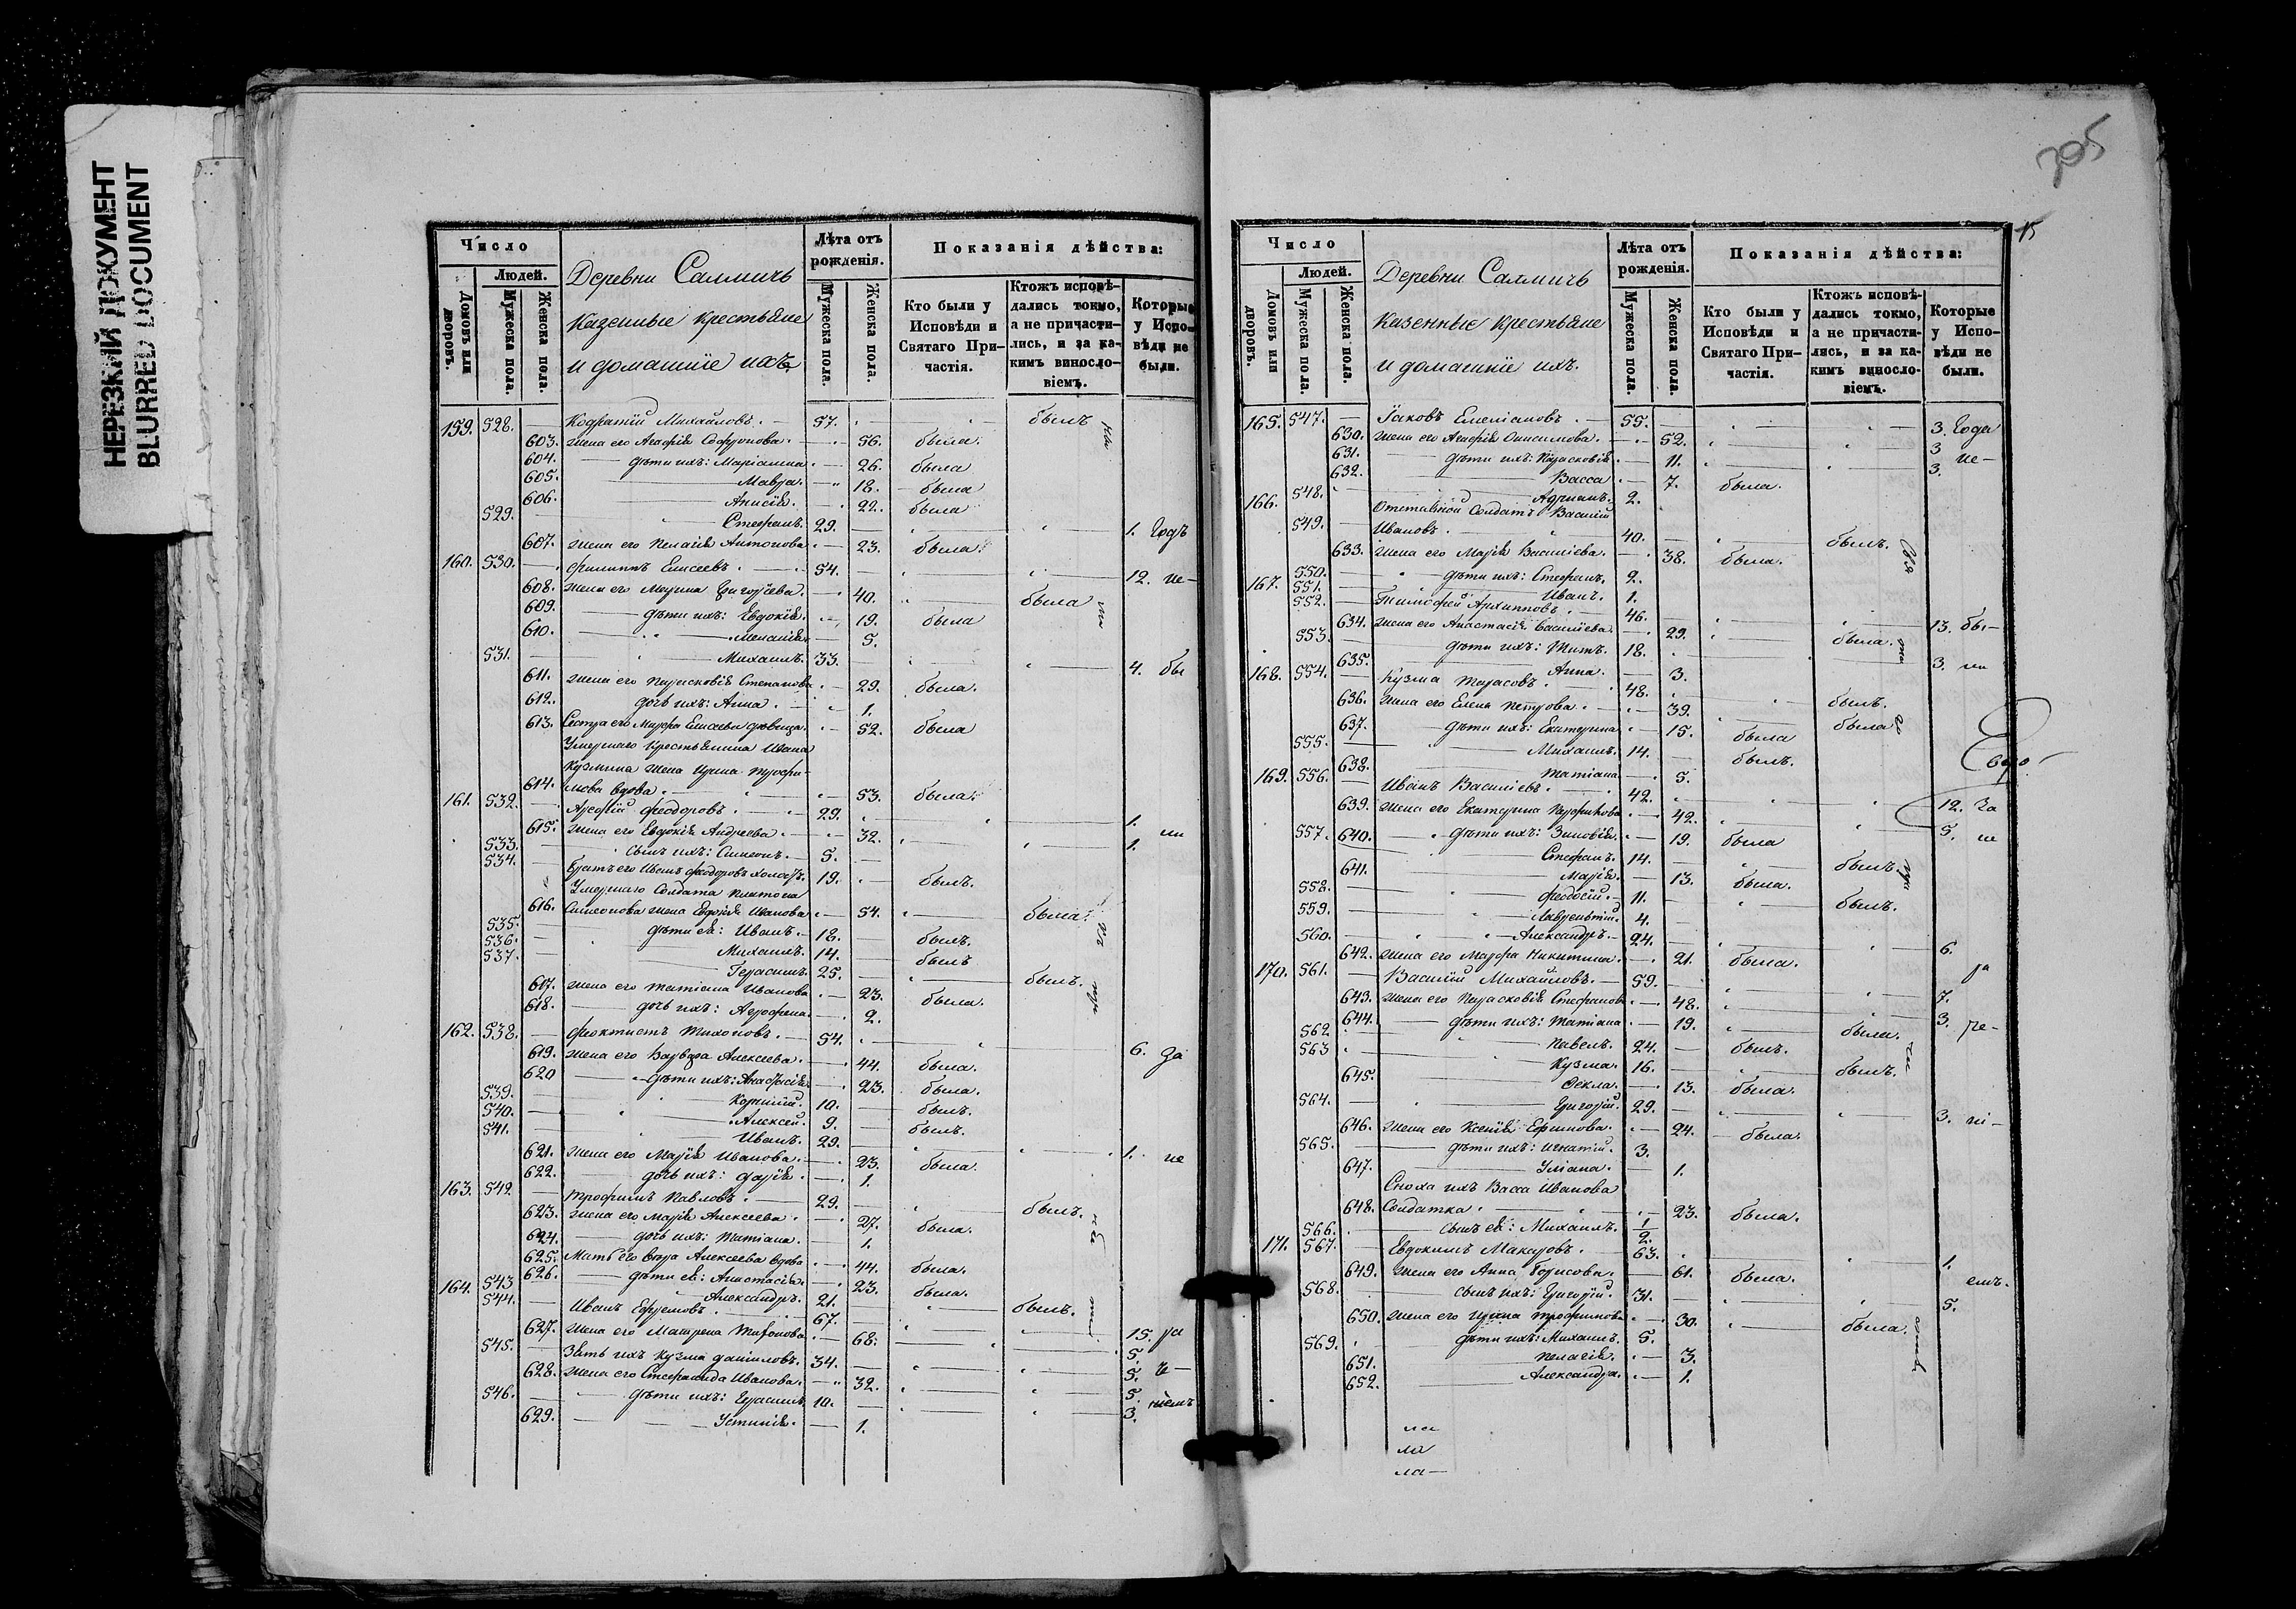 НЕРЕЗКИЙ ДОКУМЕНТ
BLURRED DOCUMENT
Число
Людей.
Домовъ или дворовъ.
Мужеска пола.
Женска пола.
Деревни Салмичь
казенные крестьяне
и домашніе ихъ
Лѣта отъ рожденія.
Мужеска пола.
Женска пола.
Показанія дѣйства:
Кто были у Исповѣди и Святаго Причастія.
Ктожъ исповѣдались токмо, а не причастились, и за какимъ винословіемъ.
Которые у Исповѣди не были.
159. 528. Кодратій Михайловъ. 57. былъ
603. жена его Агафія Софронова. 56. была.
604. дѣти ихъ: Маріамна. 26. была
605. Мавра. 18. была
606. Анисія. 22. была
529. Стефанъ. 29. 1. годъ
607. жена его Пелагія Антонова. 23. была.
160. 530. Филиппъ Елисеевъ. 54. 12. не-
608. жена его Марина Григорьева. 40. была
609. дѣти ихъ: Евдокія. 19. была
610. Меланія. 5.
531. Михаилъ. 33. 4. бы
611. жена его Парасковія Степанова 29. была.
612. дочь ихъ: Анна. 1.
613. Сестра его Марфа Елисеева дѣвица. 52. была
Умершаго крестьянина Ивана
Кузмина жена Ирина Трофи-
614. мова вдова. 53. была.
161. 532. Арефій Феодоровъ. 29. 1.
615. жена его Евдокія Андреева. 32. 1. ли
533. сынъ ихъ: Симеонъ. 5.
534. Братъ его Иванъ Феодоровъ холостъ. 19. былъ.
Умершаго Солдата Платона
616. Симеонова жена Евдокія Иванова 54. была.
535. дѣти ея: Иванъ. 18. былъ.
536. Михаилъ. 14. былъ
537. Герасимъ. 25. былъ.
617. жена его Татіана Иванова 23. была.
618. дочь ихъ: Агрофена. 2.
162. 538. Феоктистъ Тихоновъ. 54. 6. за
619. жена его Варвара Алексеева. 44. была.
620 дѣти ихъ: Анафисія. 23. была.
539. Корнилій. 10. былъ.
540. Алексей. 9. былъ.
541. Иванъ. 29. 1. не
621. жена его Марія Иванова. 23. была.
622. дочь ихъ: Дарія. 1.
163. 542. Трофимъ Павловъ. 29. былъ.
623. жена его Марія Алексеева. 27. была.
624. дочь ихъ: Татіана. 1.
625. Мать его Вѣра Алексеева вдова 44. была.
626. дѣти ея: Анастасія. 23. была.
543 Александръ. 21. былъ.
164. 544. Иванъ Ефремовъ. 67. 15. ра
627. жена его Матрена Тифонова. 68. 5.
545. Зять ихъ Кузма Даниловъ. 34. 5. ч-
628. жена его Стефанида Иванова. 32. 5.
546. дѣти ихъ: Герасимъ 10. 3. ніемъ
629. Устинія. 1.
705
15
Число
Людей.
Домовъ или дворовъ.
Мужеска пола.
Женска пола.
Деревни Салмичь
казенные крестьяне
и домашніе ихъ.
Лѣта отъ рожденія.
Мужеска пола.
Женска пола.
Показанія дѣйства:
Кто были у Исповѣди и Святаго Причастія.
Ктожъ исповѣдались токмо, а не причастились, и за какимъ винословіемъ.
Которые у Исповѣди не были.
165. 547. Іаковъ Емеліановъ. 55. 3. года
630. жена его Агафія Онисимова. 52. 3 не-
631. дѣти ихъ: Парасковія. 11. 3.
632. Васса 7. была.
548. Адріанъ. 2.
166. Отставной Солдатъ Василій
549. Ивановъ. 40. былъ.
633. жена его Марія Василіева. 38. была.
550. дѣти ихъ: Стефанъ. 2.
551. Иванъ. 1.
167. 552. Тимофей Архиповъ. 46. 13. бы-
634. жена его Анастасія Василіева. 29. была.
553. дѣти ихъ: Титъ. 18. 3. ли
635. Анна. 3.
168. 554. Кузма Тарасовъ. 48. былъ.
636. жена его Елена Петрова. 39. была
637. дѣти ихъ: Екатерина. 15. была
555. Михаилъ. 14. былъ.
638. Татіана 5.
169. 556. Иванъ Василіевъ. 42. 12. за
639. жена его Екатерина Парфинова 42. 5. не
640. дѣти ихъ: Зиновія. 19. была
557. Стефанъ. 14. былъ
641. Марія. 13. была.
558. Феодосій. 11. былъ.
559. Лаврентій. 4.
560. Александръ. 24. 6.
642. жена его Марфа Никитина. 21. была.
170. 561. Василій Михайловъ. 59. 7. ра
643. жена его Парасковія Стефанова 48. 3. ре-
644. дѣти ихъ: Татіана 19. была.
562. Павелъ. 24. былъ.
563 Кузма. 16. былъ.
645. Фекла. 13. была.
564. Григорій. 29. 3. ні-
646. жена его Ксенія Ефимова. 24. была.
565. дѣти ихъ: Игнатій. 3.
647. Уліана. 1.
Сноха ихъ Васса Иванова
648. Солдатка. 23. была.
566. сынъ ея: Михаилъ. 1/2.
171. 567. Евдокимъ Макаровъ. 63. 1.
649. жена его Анна Борисова. 61. была. емъ.
568. сынъ ихъ: Григорій. 31. 5.
650. жена его Ирина Трофимова. 30. была.
569. дѣти ихъ: Михаилъ. 5.
651. Пелагія. 3.
652. Александра. 1.